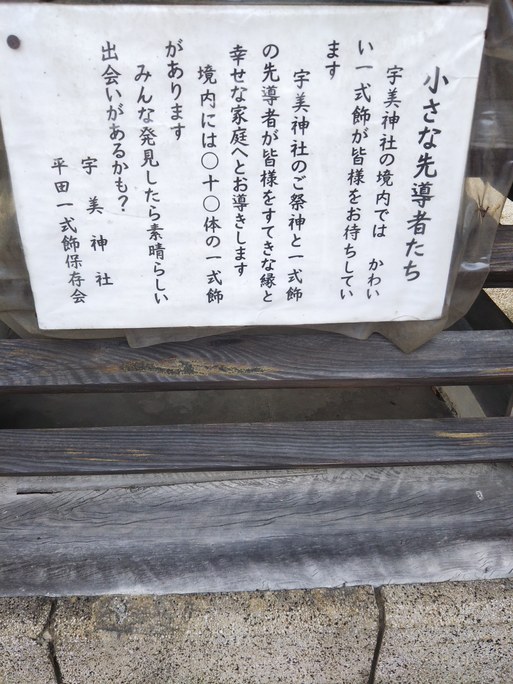 小さな先導者たち
宇美神社の境内では　かわい
い一式飾が皆様をお待ちしてい
ます
宇美神社のご祭神と一式飾
の先導者が皆様をすてきな縁と
幸せな家庭へとお導きします
境内には〇十〇体の一式飾
があります
みんな発見したら素晴らしい
出会いがあるかも？
宇美神社
平田一式飾保存会